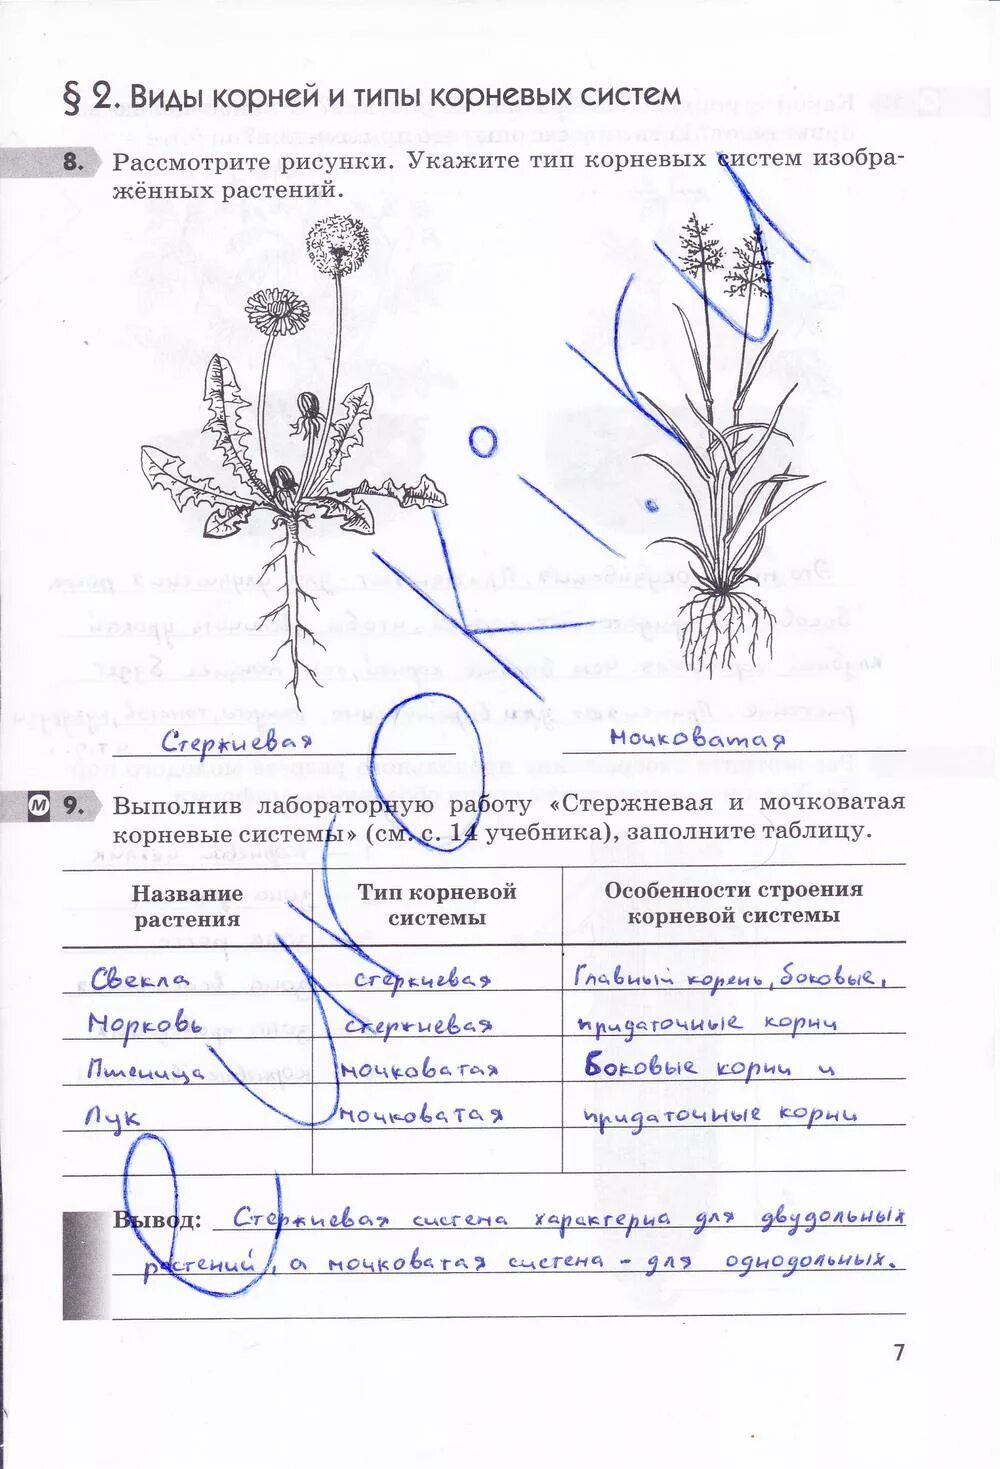 § 2. Виды корней и типы корневых систем
8. Рассмотрите рисунки. Укажите тип корневых систем изобра-
жённых растений.
Стержневая мочковатая
М 9. Выполнив лабораторную работу «Стержневая и мочковатая
корневые системы» (см. с. 14 учебника), заполните таблицу.
Название Тип корневой Особенности строения
растения системы корневой системы
Свекла стержневая Главный корень, боковые,
Морковь стержневая придаточные корни
Пшеница мочковатая Боковые корни и
Лук мочковатая придаточные корни
Вывод: Стержневая система характерна для двудольных
растений, а мочковатая система – для однодольных.
7